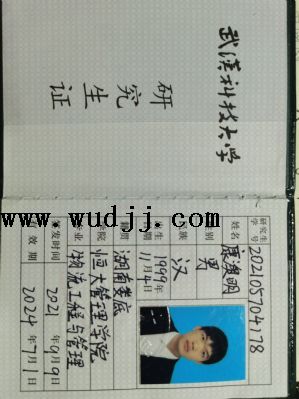 武漢科技大学
研究生证
www.wudjj.com
研究生学号 202105704178
姓名 康
性别 男
民族 汉
出生日期 1999年11月4日
籍贯 湖南娄底
学院 恒大管理学院
专业 物流工程与管理
签发时间 2021年9月9日
有效期 2024年7月1日